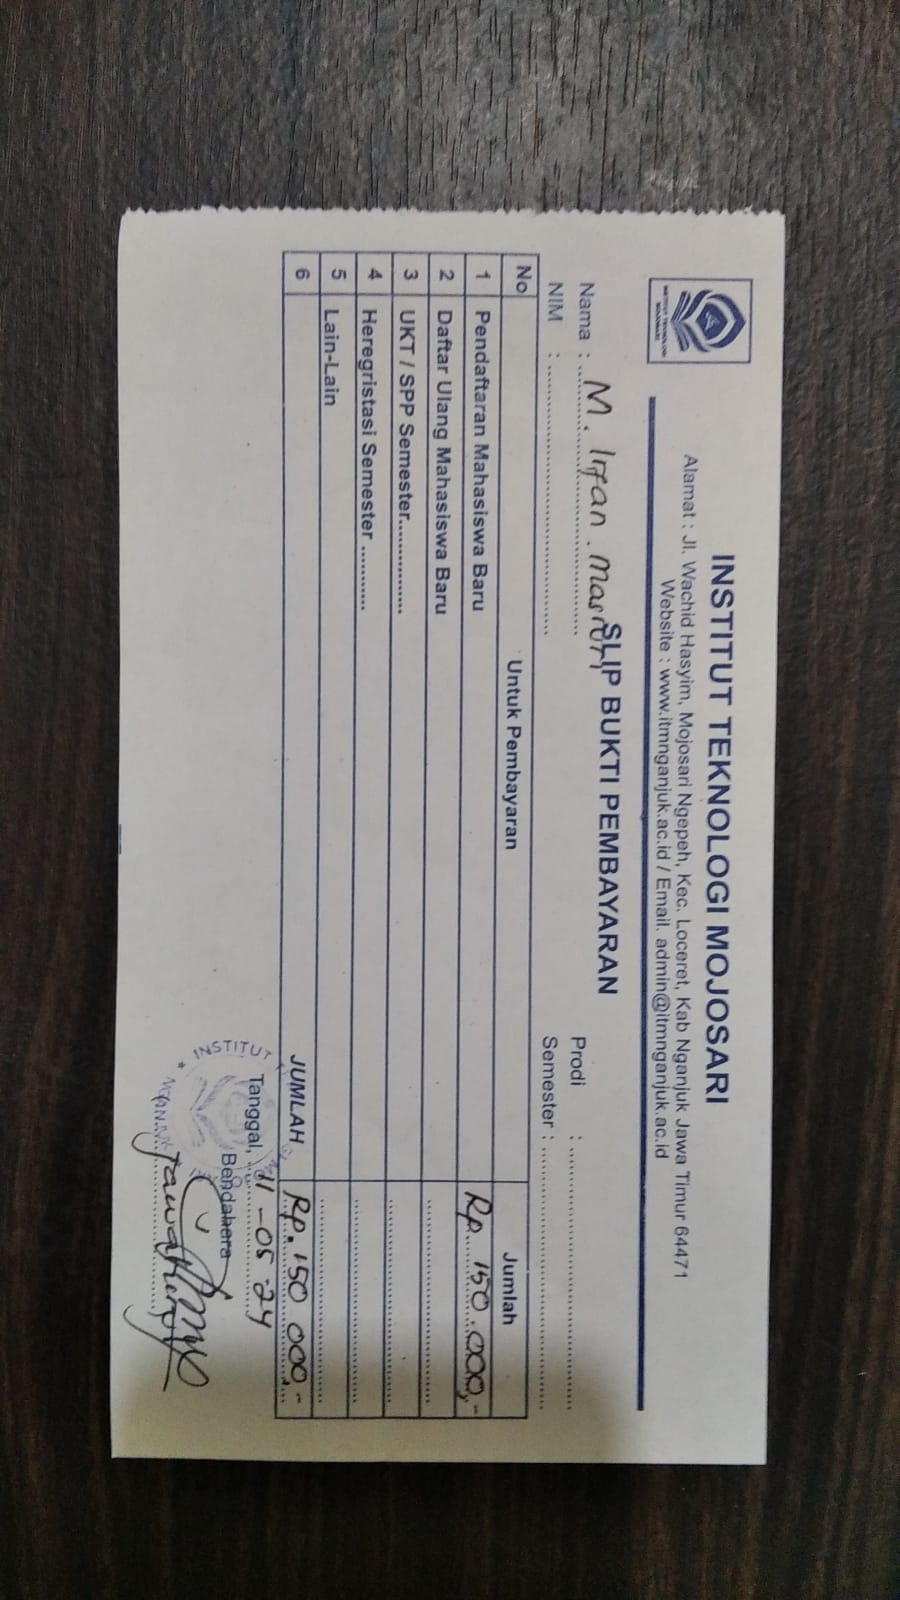 INSTITUT TEKNOLOGI MOJOSARI
Alamat : Jl. Wachid Hasyim, Mojosari Ngepeh, Kec. Loceret, Kab Nganjuk Jawa Timur 64471
Website : www.itmnganjuk.ac.id / Email. admin@itmnganjuk.ac.id
INSTITUT TEKNOLOGI
MOJOSARI
SLIP BUKTI PEMBAYARAN
Nama : M. Irfan. Prodi :
NIM : Semester :
No Untuk Pembayaran Jumlah
1 Pendaftaran Mahasiswa Baru Rp. 150.000,-
2 Daftar Ulang Mahasiswa Baru
3 UKT / SPP Semester..............
4 Heregristasi Semester ...........
5 Lain-Lain
6 JUMLAH Rp. 150 000,-
Tanggal, 11-05-24
Bendahara
INSTITUT